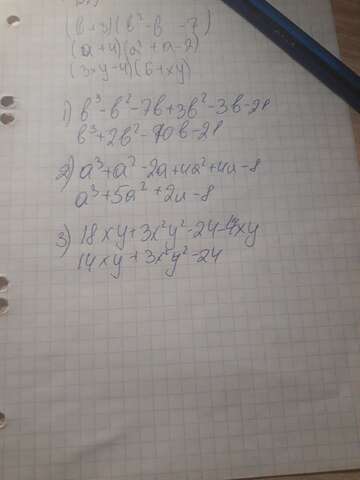 (b+3)(b²-b-7)
(a+4)(a²+a-2)
(3xy-4)(6+xy)
1) b³-b²-7b+3b²-3b-21
b³+2b²-10b-21
2) a³+a²-2a+4a²+4a-8
a³+5a²+2a-8
3) 18xy+3x²y²-24-4xy
14xy+3x²y²-24